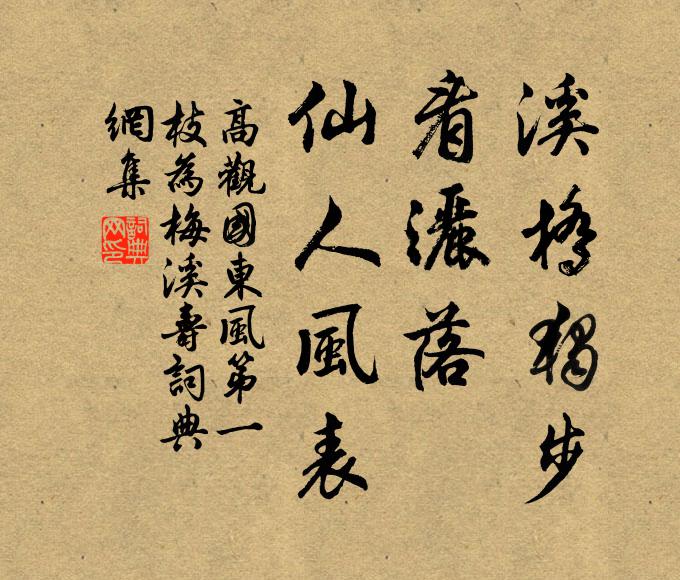 溪橋獨步
看灑落
仙人風表
高觀國東風第一
枝為梅溪壽詞典
網集
詞典
网印